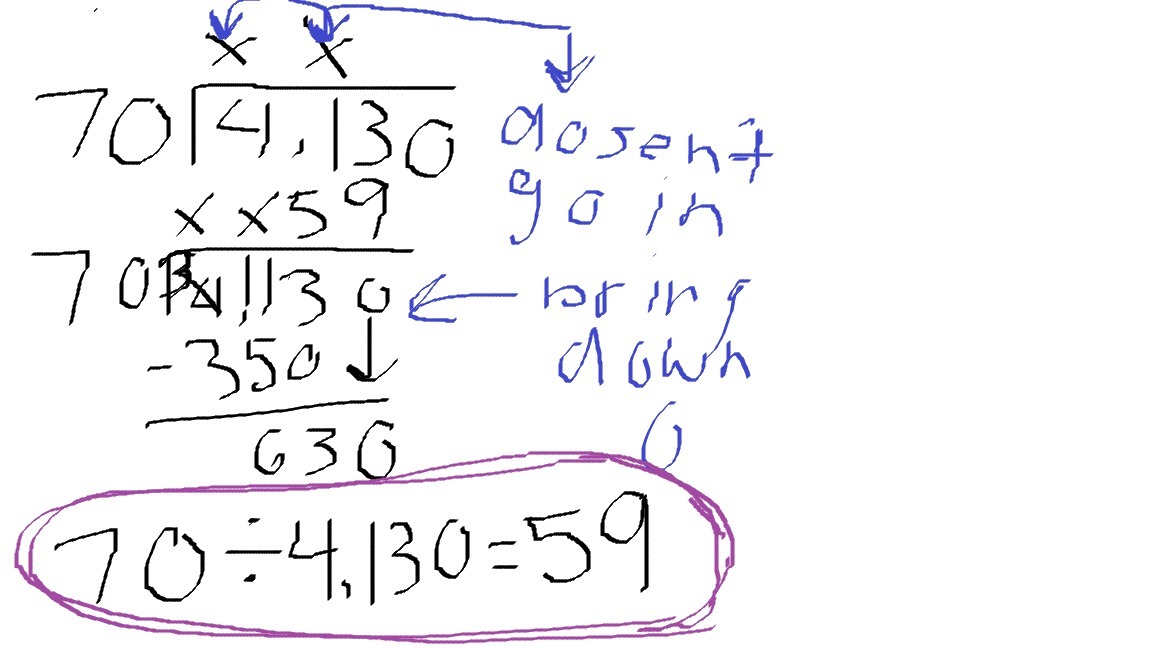 x x
70 4,130 dosent
go in
x x 5 9
70 4,130 bring
down
0
-350
630
70÷4,130=59